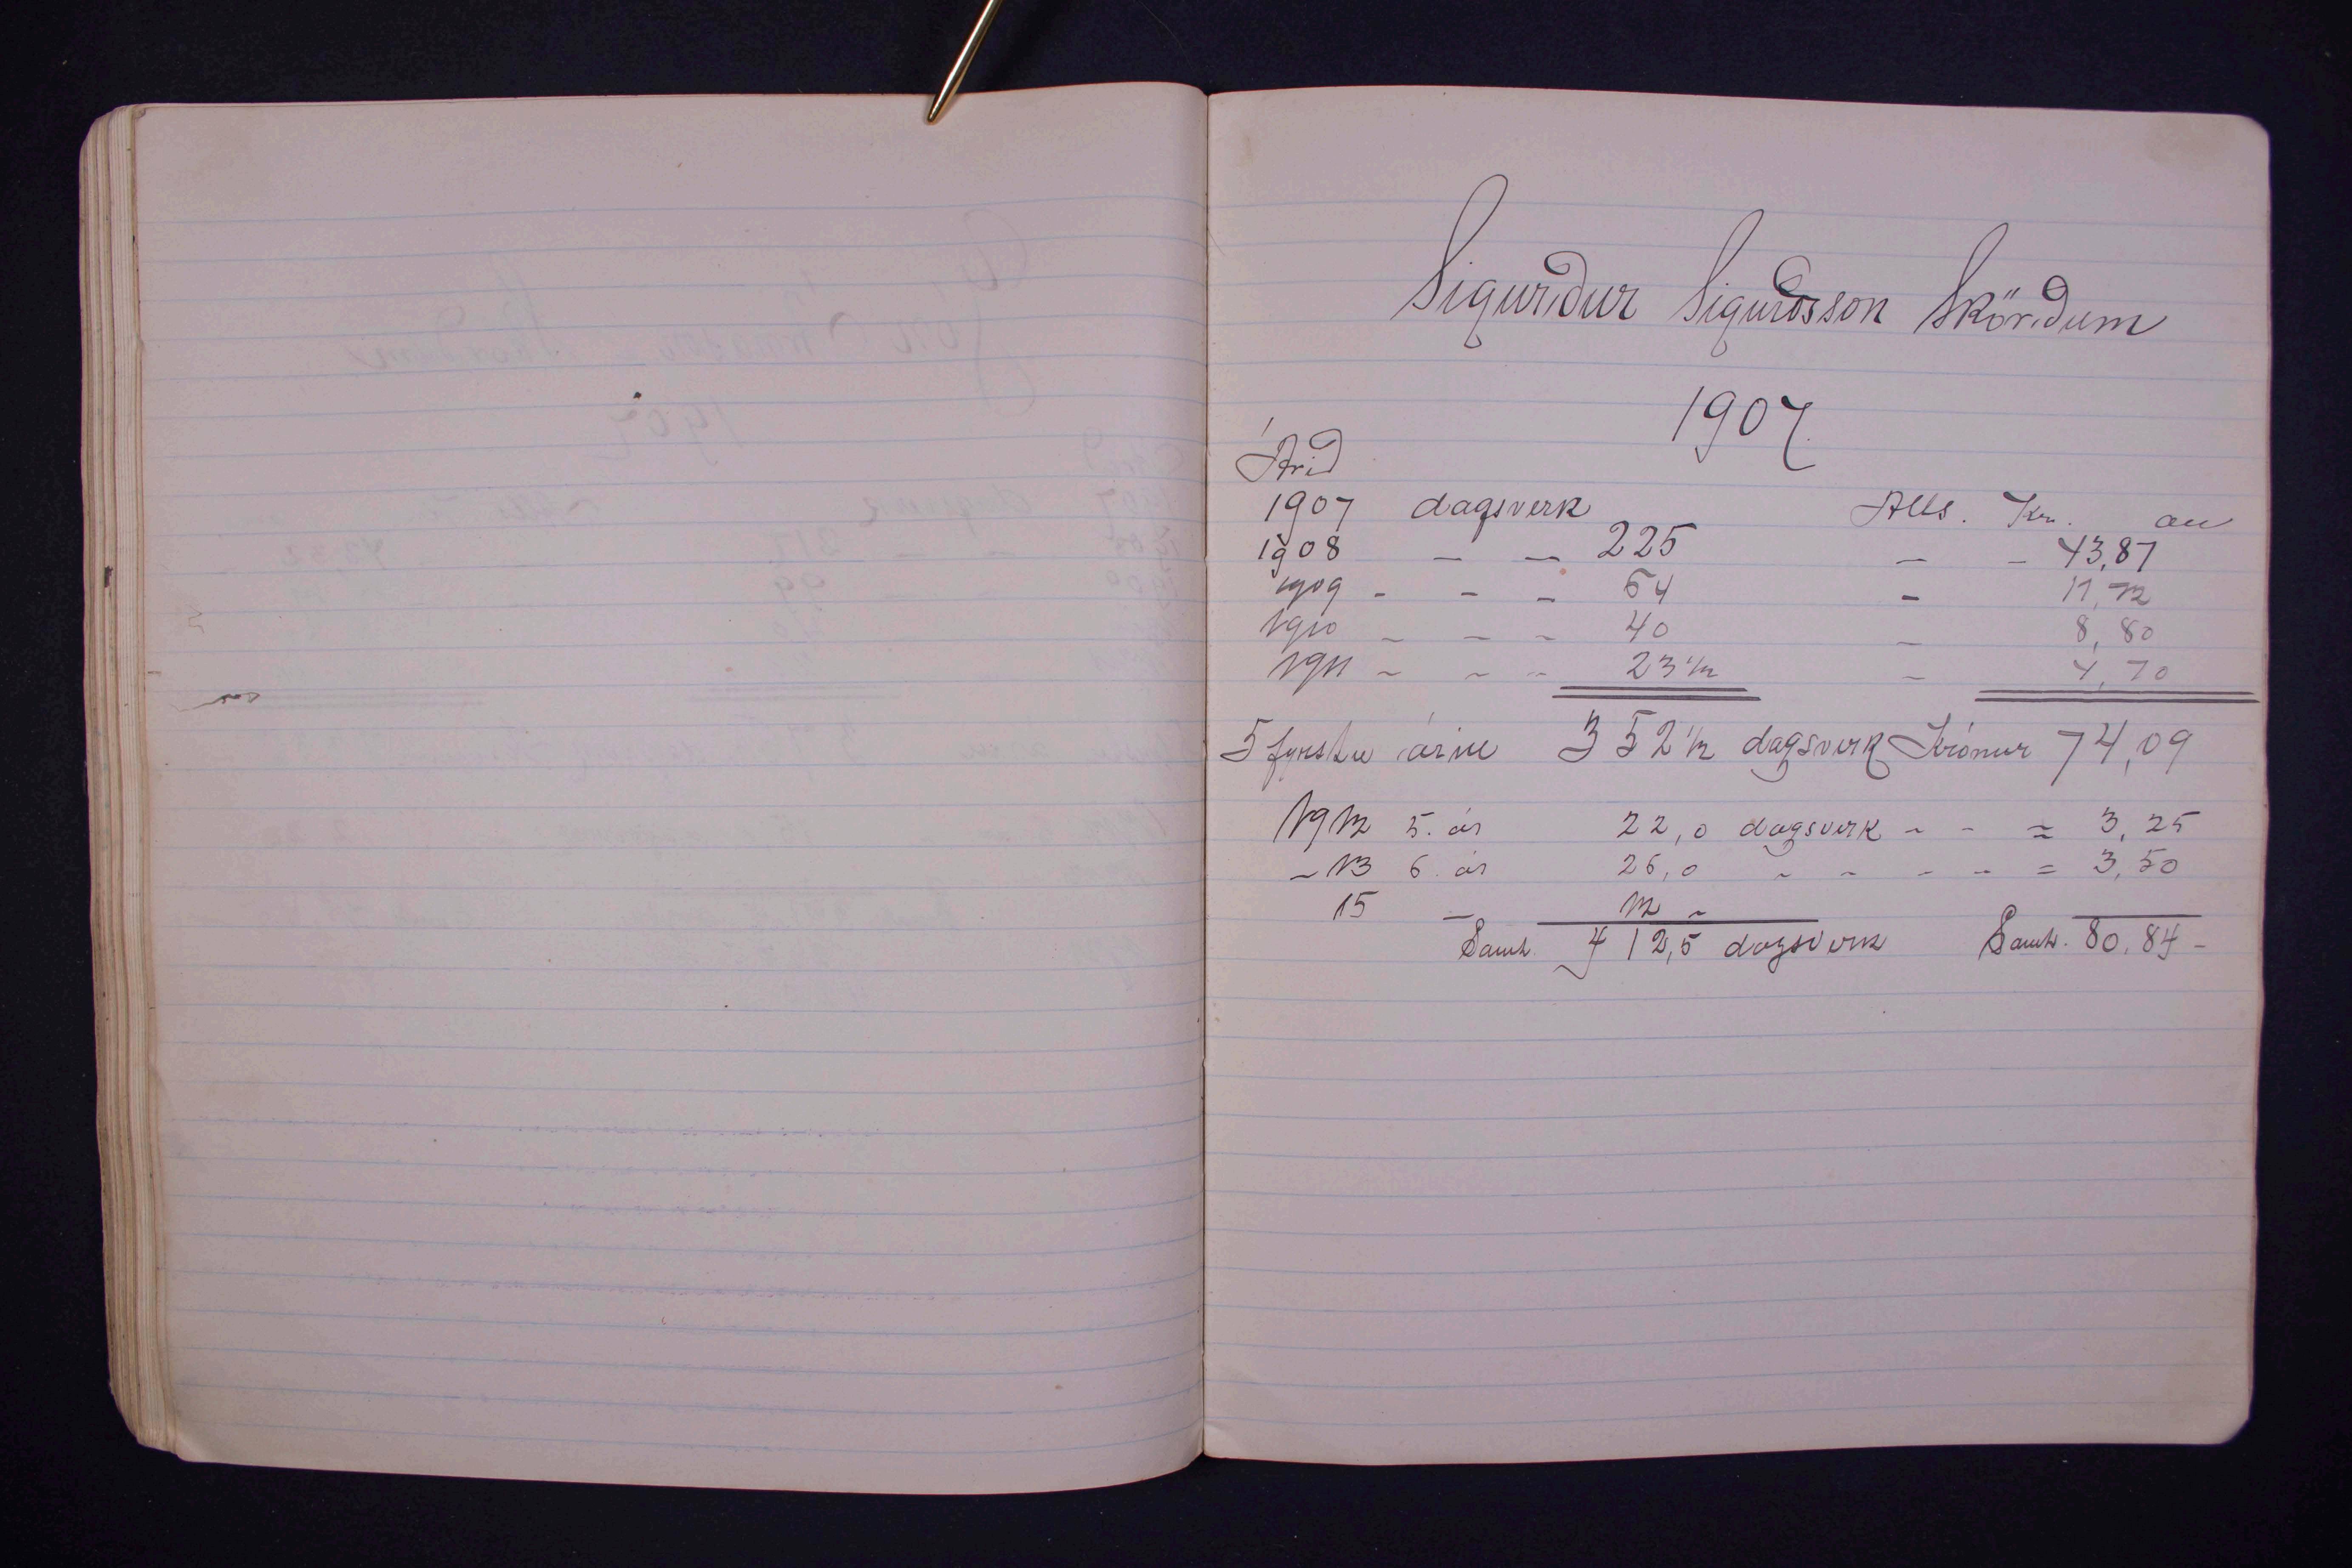 Sigurður Sigurðsson Skörðum
1907.
Árið
1907 dagsverk Alls. Kr. au
1908 - - 225 - - 43,87
1909 - - - 64 - 16,72
1910 - - - 40 - 8,80
1911 - - - 23 1/2 - 4,70
5 fyrstu árin 352 1/2 dagsverk Krónur 74,09
1912 5. ár 22,0 dagsverk - - = 3,25
- 13 6. ár 26,0 - - - - = 3,50
15 - 12 -
Samt. 412,5 dagsverk Samt. 80,84 -